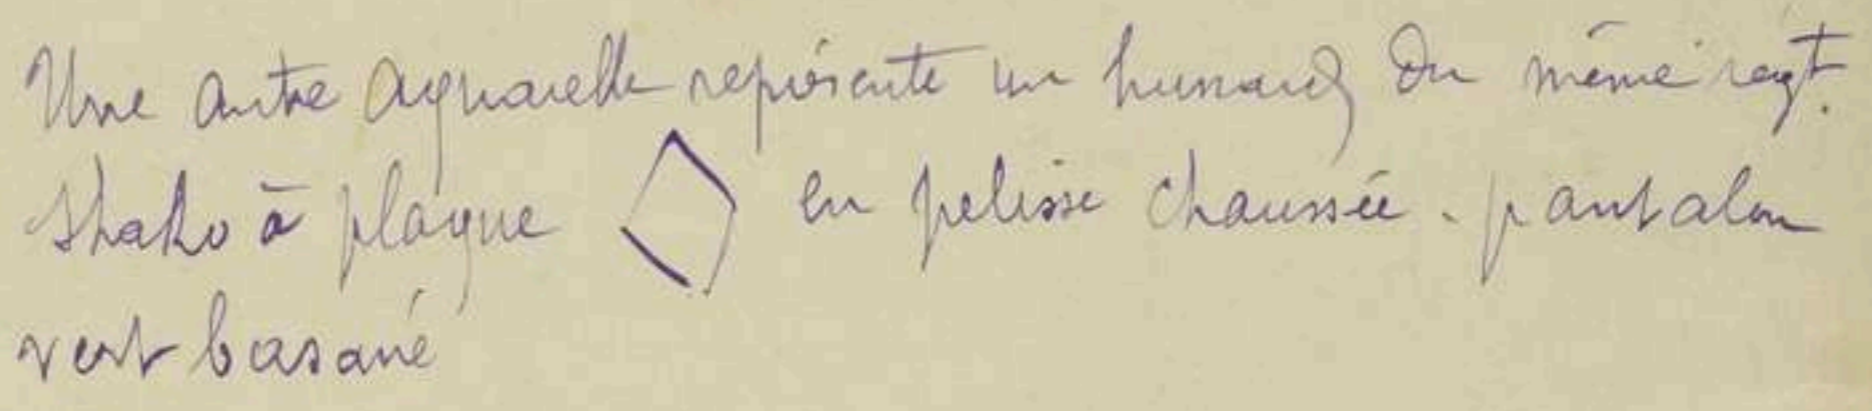 Une autre aquarelle représente un hussard du même regt.
Shako à plaque en pelisse chaussée. pantalon
vert basané